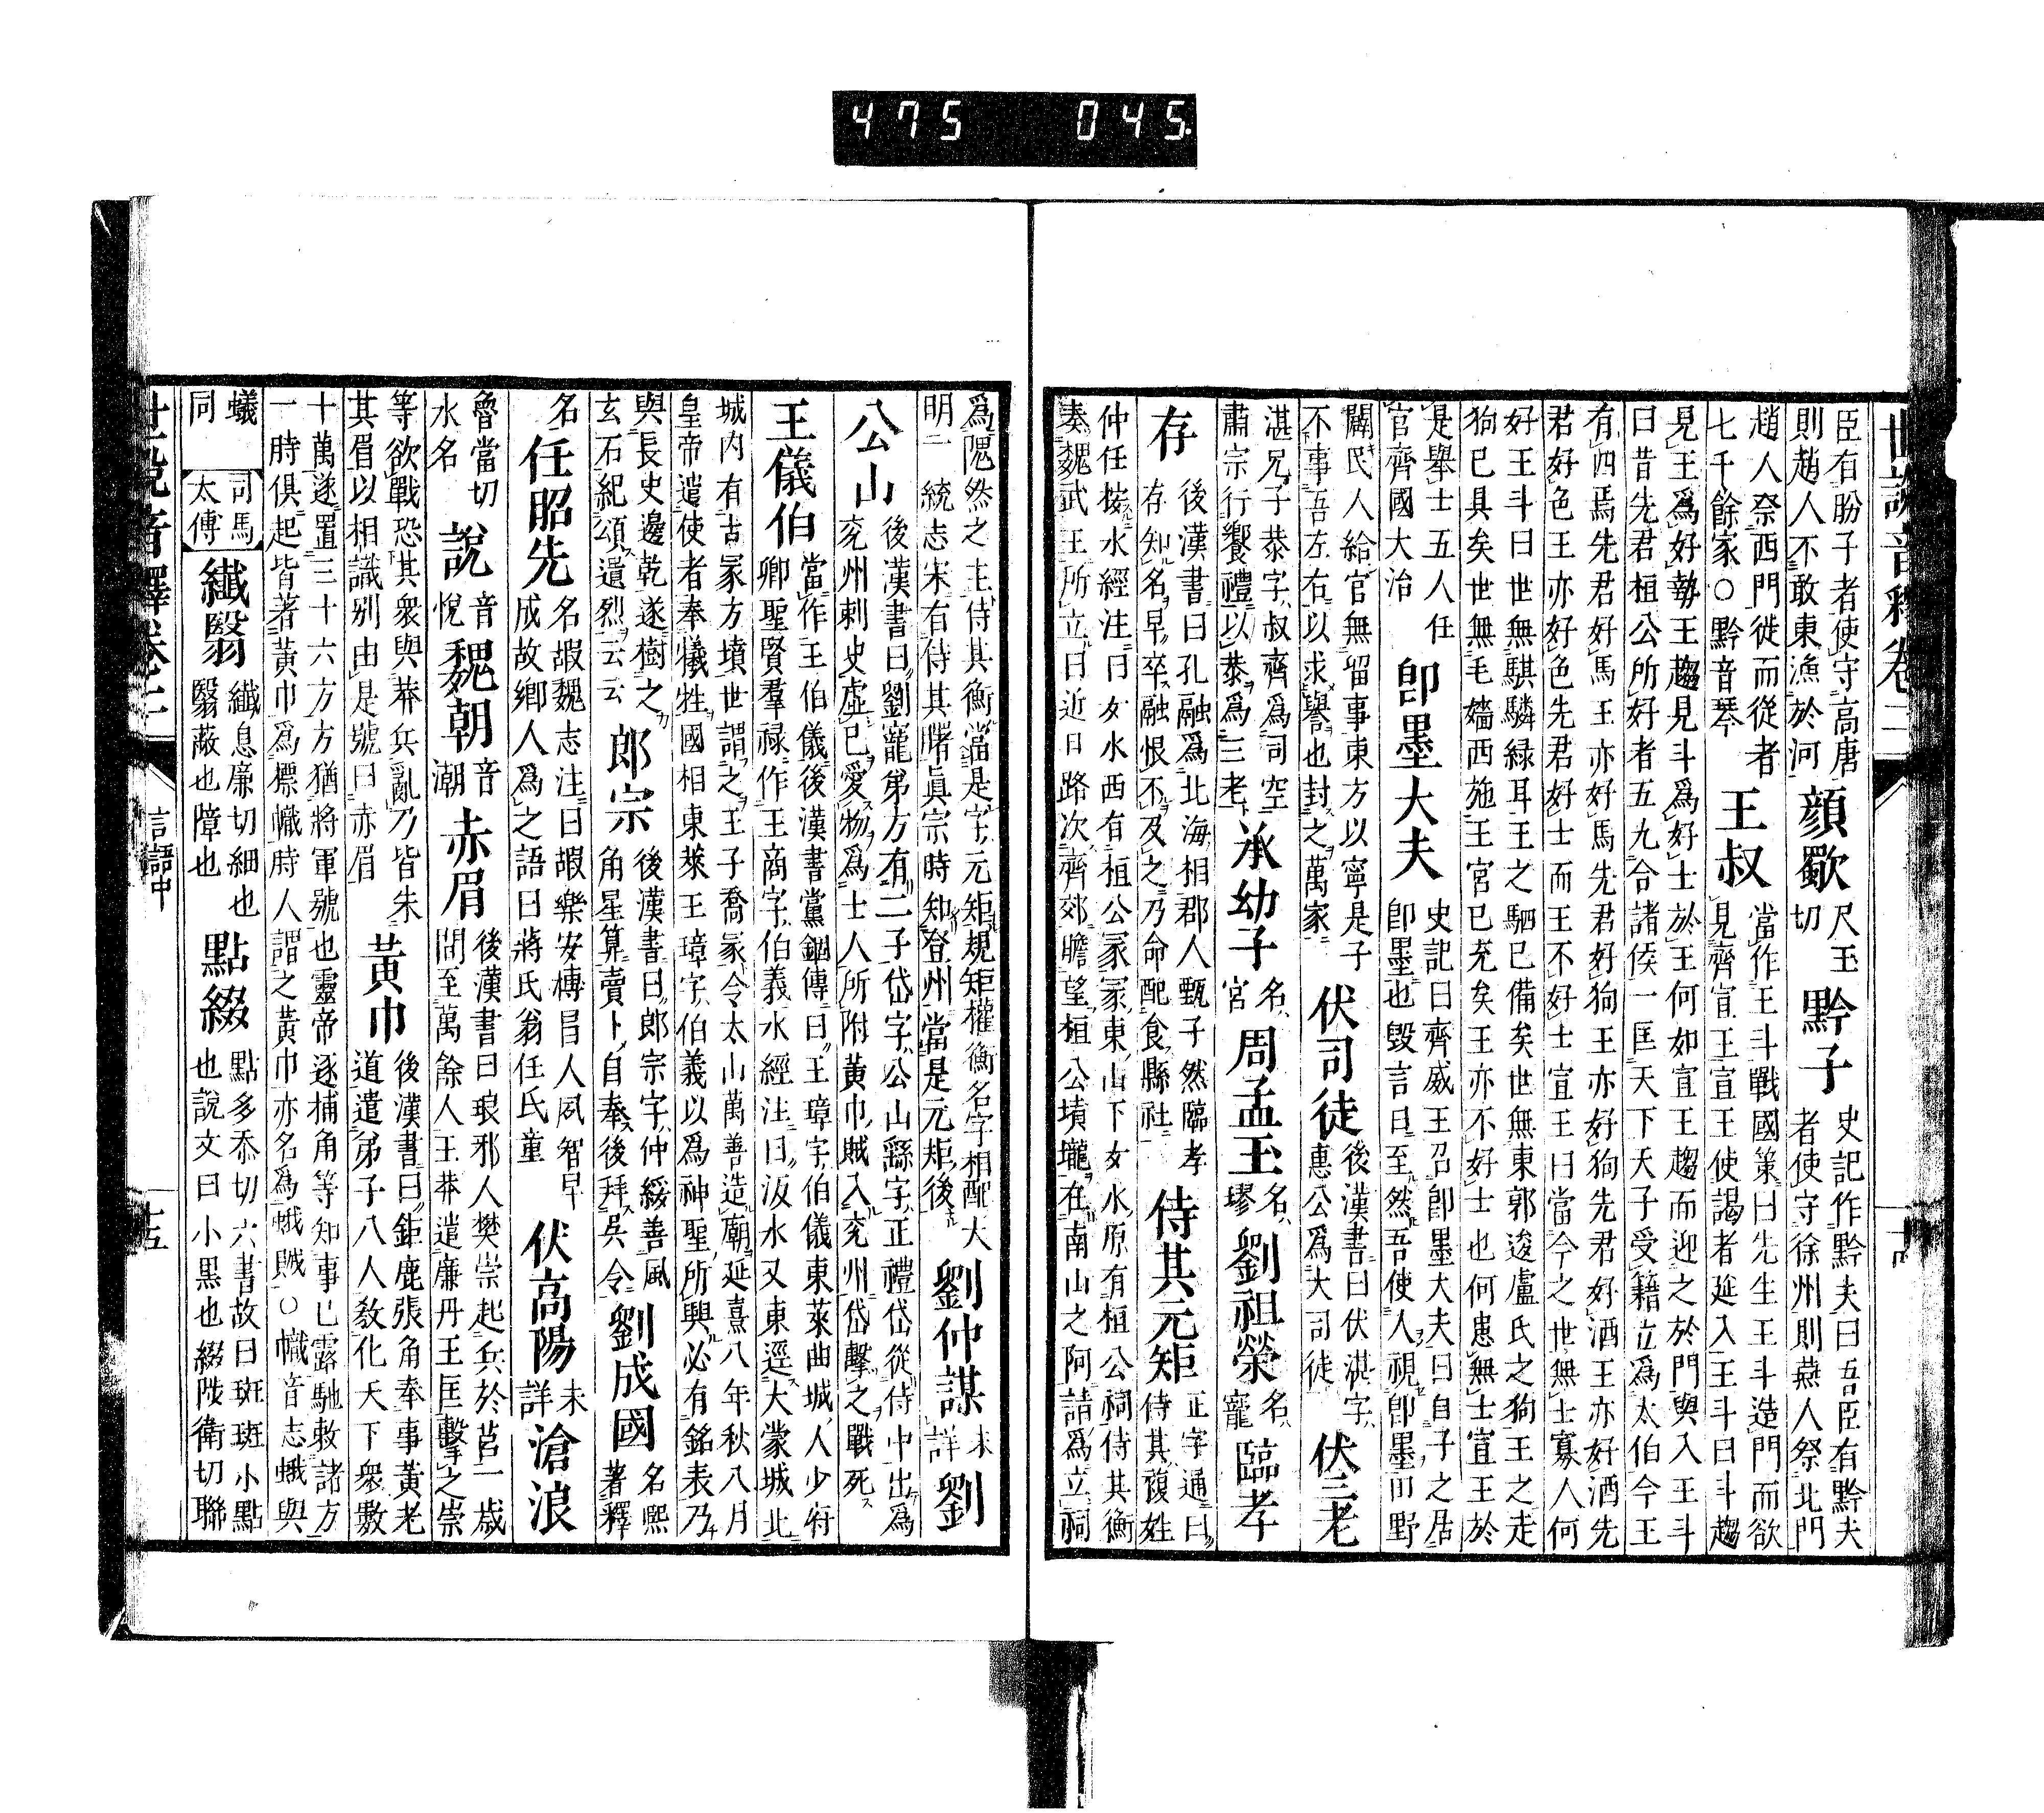 475 045.
世說音釋卷二
臣有肦子者使守高唐
則趙人不敢東漁於河
顏歜
尺玉
切
黔子
史記作黔夫曰吾臣有黔夫
者使守徐州則燕人祭北門
趙人祭西門徙而從者
七千餘家○黔音琴
王叔
當作王斗戰國策曰先生王斗造門而欲
見齊宣王宣王使謁者延入王斗曰斗趨
見王爲好勢王趨見斗爲好士於王何如宣王趨而迎之於門與入王斗
曰昔先君桓公所好者五九合諸侯一匡天下天子受籍立爲太伯今王
有四焉先君好馬王亦好馬先君好狗王亦好狗先君好酒王亦好酒先
君好色王亦好色先君好士而王不好士宣王曰當今之世無士寡人何
好王斗曰世無騏驎緑耳王之駟已備矣世無東郭逡盧氏之狗王之走
狗已具矣世無毛嬙西施王宮已充矣王亦不好士也何患無士宣王於
是舉士五人任
官齊國大治
卽墨大夫
史記曰齊威王召卽墨大夫曰自子之居
卽墨也毀言日至然吾使人視卽墨田野
闢民人給官無留事東方以寧是子
不事吾左右以求譽也封之萬家
伏司徒
後漢書曰伏湛字
惠公爲大司徒
伏三老
湛兄子恭字叔齊爲司空
肅宗行饗禮以恭爲三老
承幼子
名
宮
周孟玉
名
璆
劉祖榮
名
寵
臨孝
存
後漢書曰孔融爲北海相郡人甄子然臨孝
存知名早卒融恨不及之乃命配食縣社
侍其元矩
正字通曰
侍其複姓
仲任按水經注曰女水西有桓公冢冢東山下女水原有桓公祠侍其衡
奏魏武王所立曰近日路次齊郊瞻望桓公墳壠在南山之阿請爲立祠
爲隗然之主侍其衡當是字元矩規矩權衡名字相配大
明一統志宋有侍其曙眞宗時知登州當是元矩後
劉仲謀
未
詳
劉
公山
後漢書曰劉寵弟方有二子岱字公山繇字正禮岱從侍中出爲
兗州刺史虛己愛物爲士人所附黃巾賊入兗州岱擊之戰死
王儀伯
當作王伯儀後漢書黨錮傳曰王璋字伯儀東萊曲城人少府
卿聖賢羣祿作王商字伯義水經注曰汳水又東逕大蒙城北
城內有古冢方墳世謂之王子喬冢令太山萬善造廟延熹八年秋八月
皇帝遣使者奉犧牲國相東萊王璋字伯義以爲神聖所興必有銘表乃
與長史邊乾遂樹之
玄石紀頌遺烈云云
郎宗
後漢書曰郎宗字仲綏善風
角星算賣卜自奉後拜吳令
劉成國
名熙
著釋
名
任昭先
名嘏魏志注曰嘏樂安博昌人夙智早
成故鄉人爲之語曰蔣氏翁任氏童
伏高陽
未
詳
滄浪
魯當切
水名
說
音
悅
魏朝
音
潮
赤眉
後漢書曰琅邪人樊崇起兵於莒一歲
間至萬餘人王莽遣廉丹王匡擊之崇
等欲戰恐其衆與莽兵亂乃皆朱
其眉以相識别由是號曰赤眉
黃巾
後漢書曰鉅鹿張角奉事黃老
道遣弟子八人敎化天下衆數
十萬遂置三十六方方猶將軍號也靈帝逐捕角等知事已露馳敕諸方
一時俱起皆著黃巾爲標幟時人謂之黃巾亦名爲蛾賊○幟音志蛾與
蟻
同
司馬
太傅
纖翳
纖息廉切細也
翳蔽也障也
點綴
點多忝切六書故曰斑斑小點
也說文曰小黒也綴陟衛切聯
世說音釋卷二
言語中